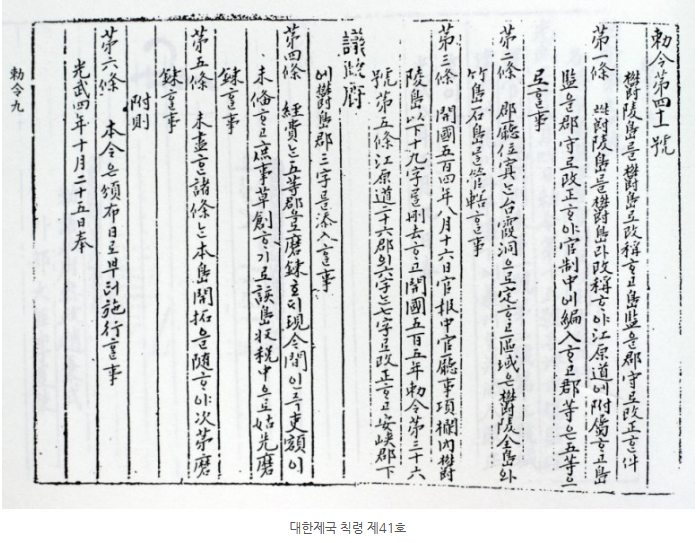 勅令第四十一號
欝陵島를欝島로改稱ᄒᆞ고島監을郡守로改正ᄒᆞᆫ件
第一條 欝陵島를欝島라改稱ᄒᆞ야江原道에附屬ᄒᆞ고島
監을郡守로改正ᄒᆞ야官制中에編入ᄒᆞ고郡等은五等으
로ᄒᆞᆯ事
第二條 郡廳位寘는台霞洞으로定ᄒᆞ고區域은欝陵全島와
竹島石島를管轄ᄒᆞᆯ事
第三條 開國五百四年八月十六日官報中官廳事項欄內欝
陵島以下十九字를刪去ᄒᆞ고開國五百五年勅令第三十六
號第五條江原道二十六郡의六字는七字로改正ᄒᆞ고安峽郡下
議政府
에欝島郡三字를添入ᄒᆞᆯ事
第四條 經費는五等郡으로磨鍊호ᄃᆡ現今間인즉吏額이
未備ᄒᆞ고庶事草創ᄒᆞ기로該島收稅中으로姑先磨
鍊ᄒᆞᆯ事
第五條 未盡ᄒᆞᆫ諸條는本島開拓을隨ᄒᆞ야次第磨
鍊ᄒᆞᆯ事
附則
第六條 本令은頒布日로부터施行ᄒᆞᆯ事
光武四年十月二十五日奉
勅令九
대한제국 칙령 제41호